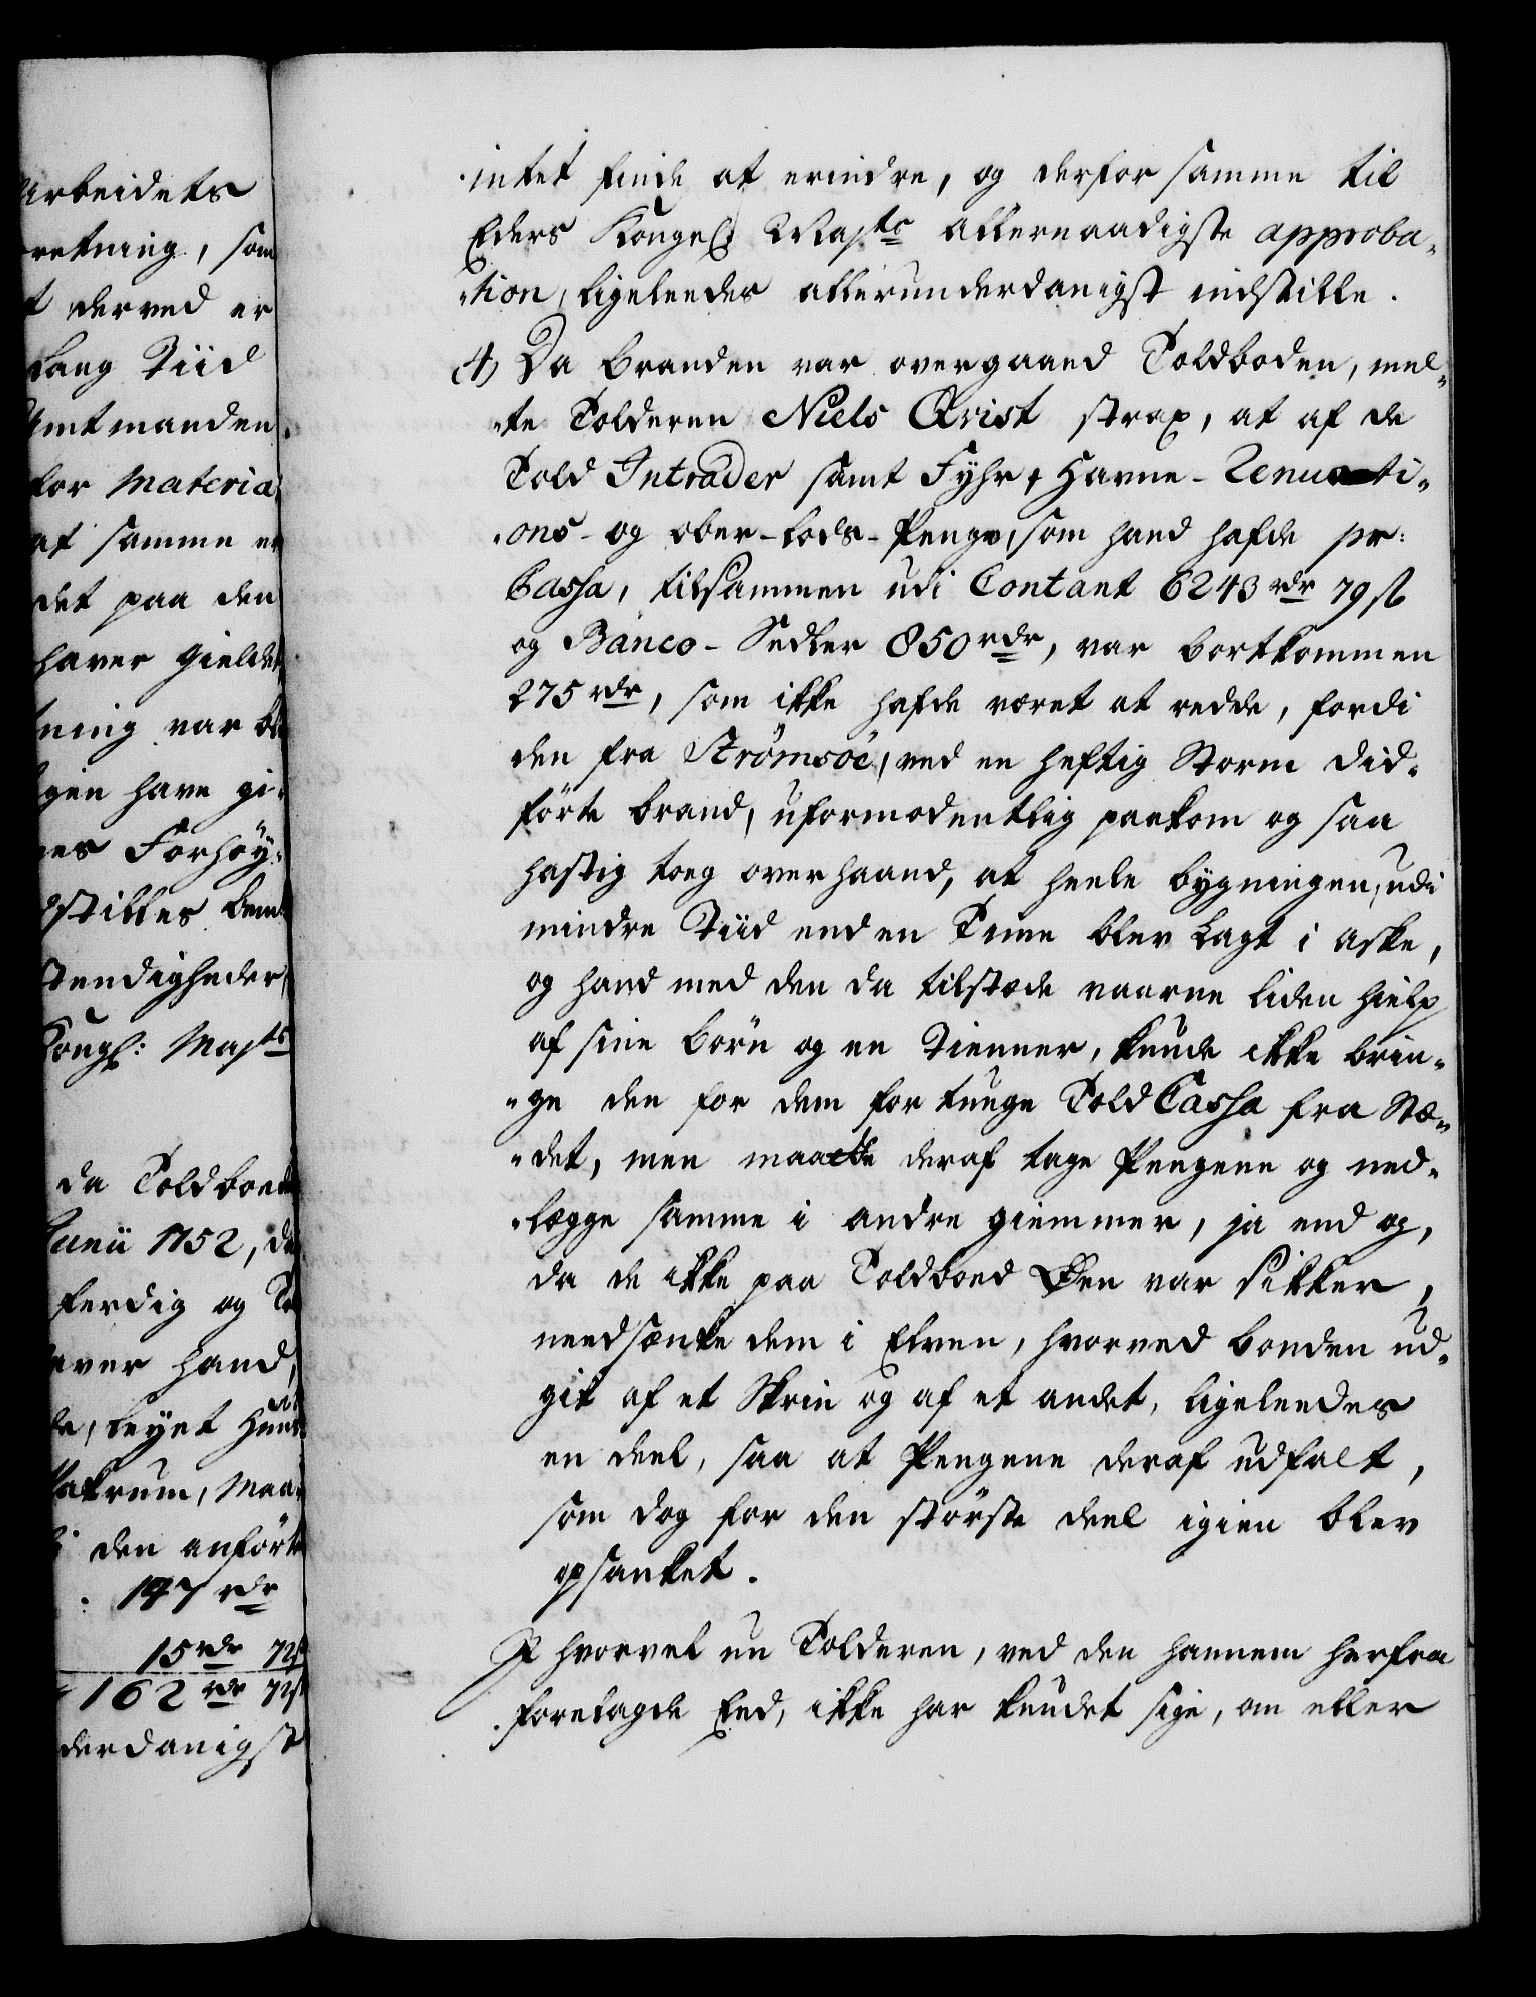 Arbeidets
retning, som
t derved er
lang Tiid
Amtmanden
for Materia
af samme er
det paa den
haver gieldet
ning var bl
gen have gi
nes Forhöy-
stilles dem
stendigheder
Kongl: Majts
da Toldboed
Junii 1752, de
ferdig og To
aver hand,
de, leyet Huus
Pakrum, Maa-
den anförte
147 rdr
15 rdr 72 s
162 rdr 72 s
derdanigst
intet finde at erindre, og derfor samme til
Eders Kongel Mayts allernaadigste approba-
-tion, ligeleedes allerunderdanigst indstille.
4) Da Branden var overgaaed Toldboden, mel-
-te Tolderen Niels Qvist strax, at af de
Told Intrader samt Fyhr, Havne- Renuati-
-ons- og ober-Lods-Penge, som hand hafde pr:
Cassa, tilsammen udi Contant 6243 rdr 79 s
og Banco-Sedler 850 rdr, var bortkommen
275 rdr, som ikke hafde været at redde, fordi
den fra Strømsöe, ved en heftig Storm did-
förte brand, uformodentlig paakom og saa
hastig toeg overhaand, at heele bygningen, udi
mindre Tiid end en Time blev lagt i aske,
og hand med den da tilstæde vaarne liden hielp
af sine börn og en Tienner, kunde ikke brin-
-ge den for dem for tunge Told Cassa fra Stæ-
-det, men maatte deraf tage Pengene og ned-
-lægge samme i andre giemmer, ja end og,
da de ikke paa Toldboed Øen var sikker,
needsænke dem i Elven, hvorved bonden ud-
gik af et Skrin og af et andet, ligeleedes
en deel, saa at Pengene deraf udfalt,
som dog for den störste deel igien blev
opsanket.
I hvorvel nu Tolderen, ved den hannem herfra
forelagde Eed, ikke har kundet sige, om eller